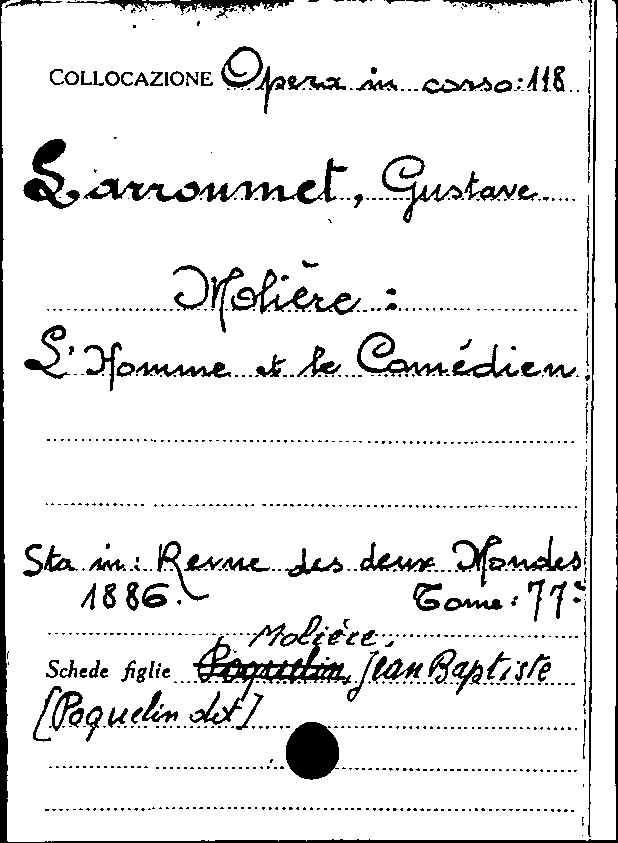 COLLOCAZIONE Opera in corso: 118
Larroumet, Gustave
Molière :
L'Homme et le Comédien.
Sta in: Revue des deux Mondes
1886. Tome: 77:
Molière,
Schede figlie Poquelin, Jean Baptiste
[Poquelin dit]